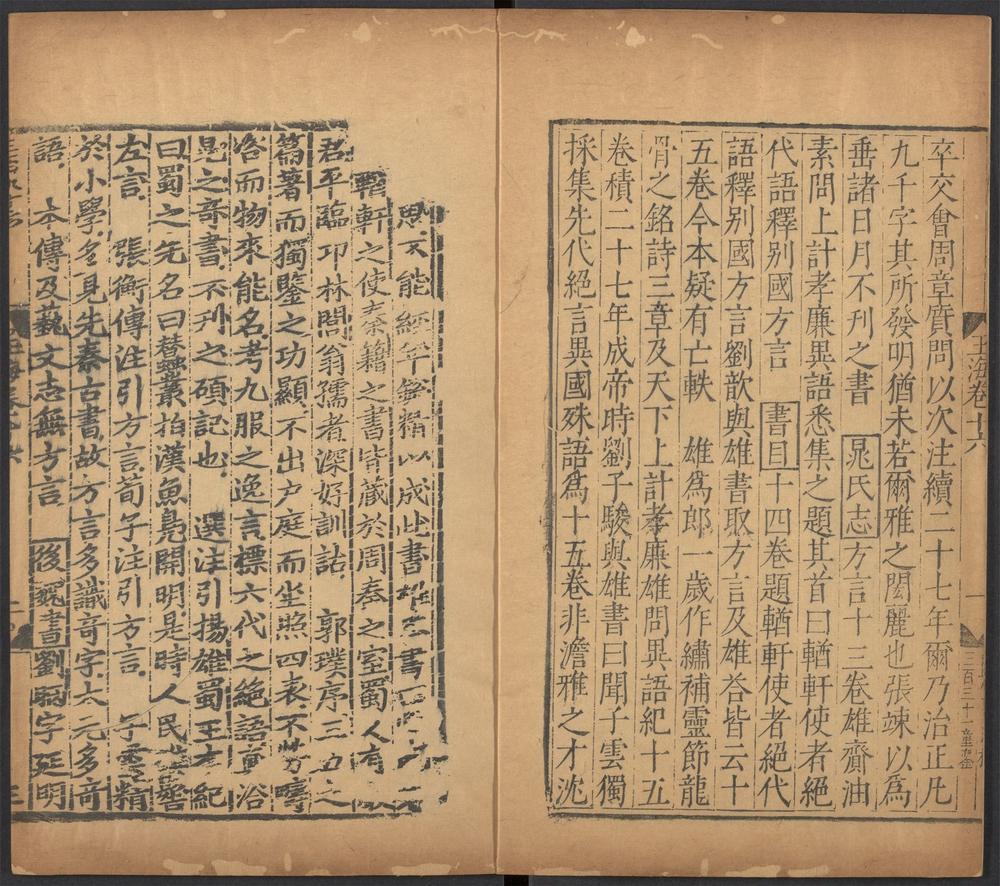 玉海卷十六
三百三十一
卒交會周章質問以次注續二十七年爾乃治正凡
九千字其所發明猶未若爾雅之閎麗也張竦以為
垂諸日月不刋之書 晁氏志方言十三卷雄齎油
素問上計孝廉異語悉集之題其首曰輶軒使者絕
代語釋别國方言 書目十四卷題輶軒使者絕代
語釋别國方言劉歆與雄書取方言及雄荅皆云十
五卷今本疑有亡軼 雄為郎一歲作繡補靈節龍
骨之銘詩三章及天下上計孝廉雄問異語紀十五
卷積二十七年成帝時劉子駿與雄書曰聞子雲獨
採集先代絕言異國殊語為十五卷非澹雅之才沈
思不能經年銳精以成此書雄
軒之使奏籍之書皆藏於周秦之室蜀人有
君平臨卭林閭翁孺者深好訓詁 郭璞序三五之
篇著而獨鑒之功顯不出户庭而坐照四表不勞疇
咨而物來能名考九服之逸言標六代之絶語真洽
見之竒書不刋之碩記也 選注引揚雄蜀王本紀
曰蜀之先名曰蠶叢拍濩魚鳧開明是時人民
左言 張衡傳注引方言荀子注引方言 子雲精
於小學多見先秦古書故方言多識竒字太元多竒
語 本傳及藝文志無方言 後魏書劉昞字延明